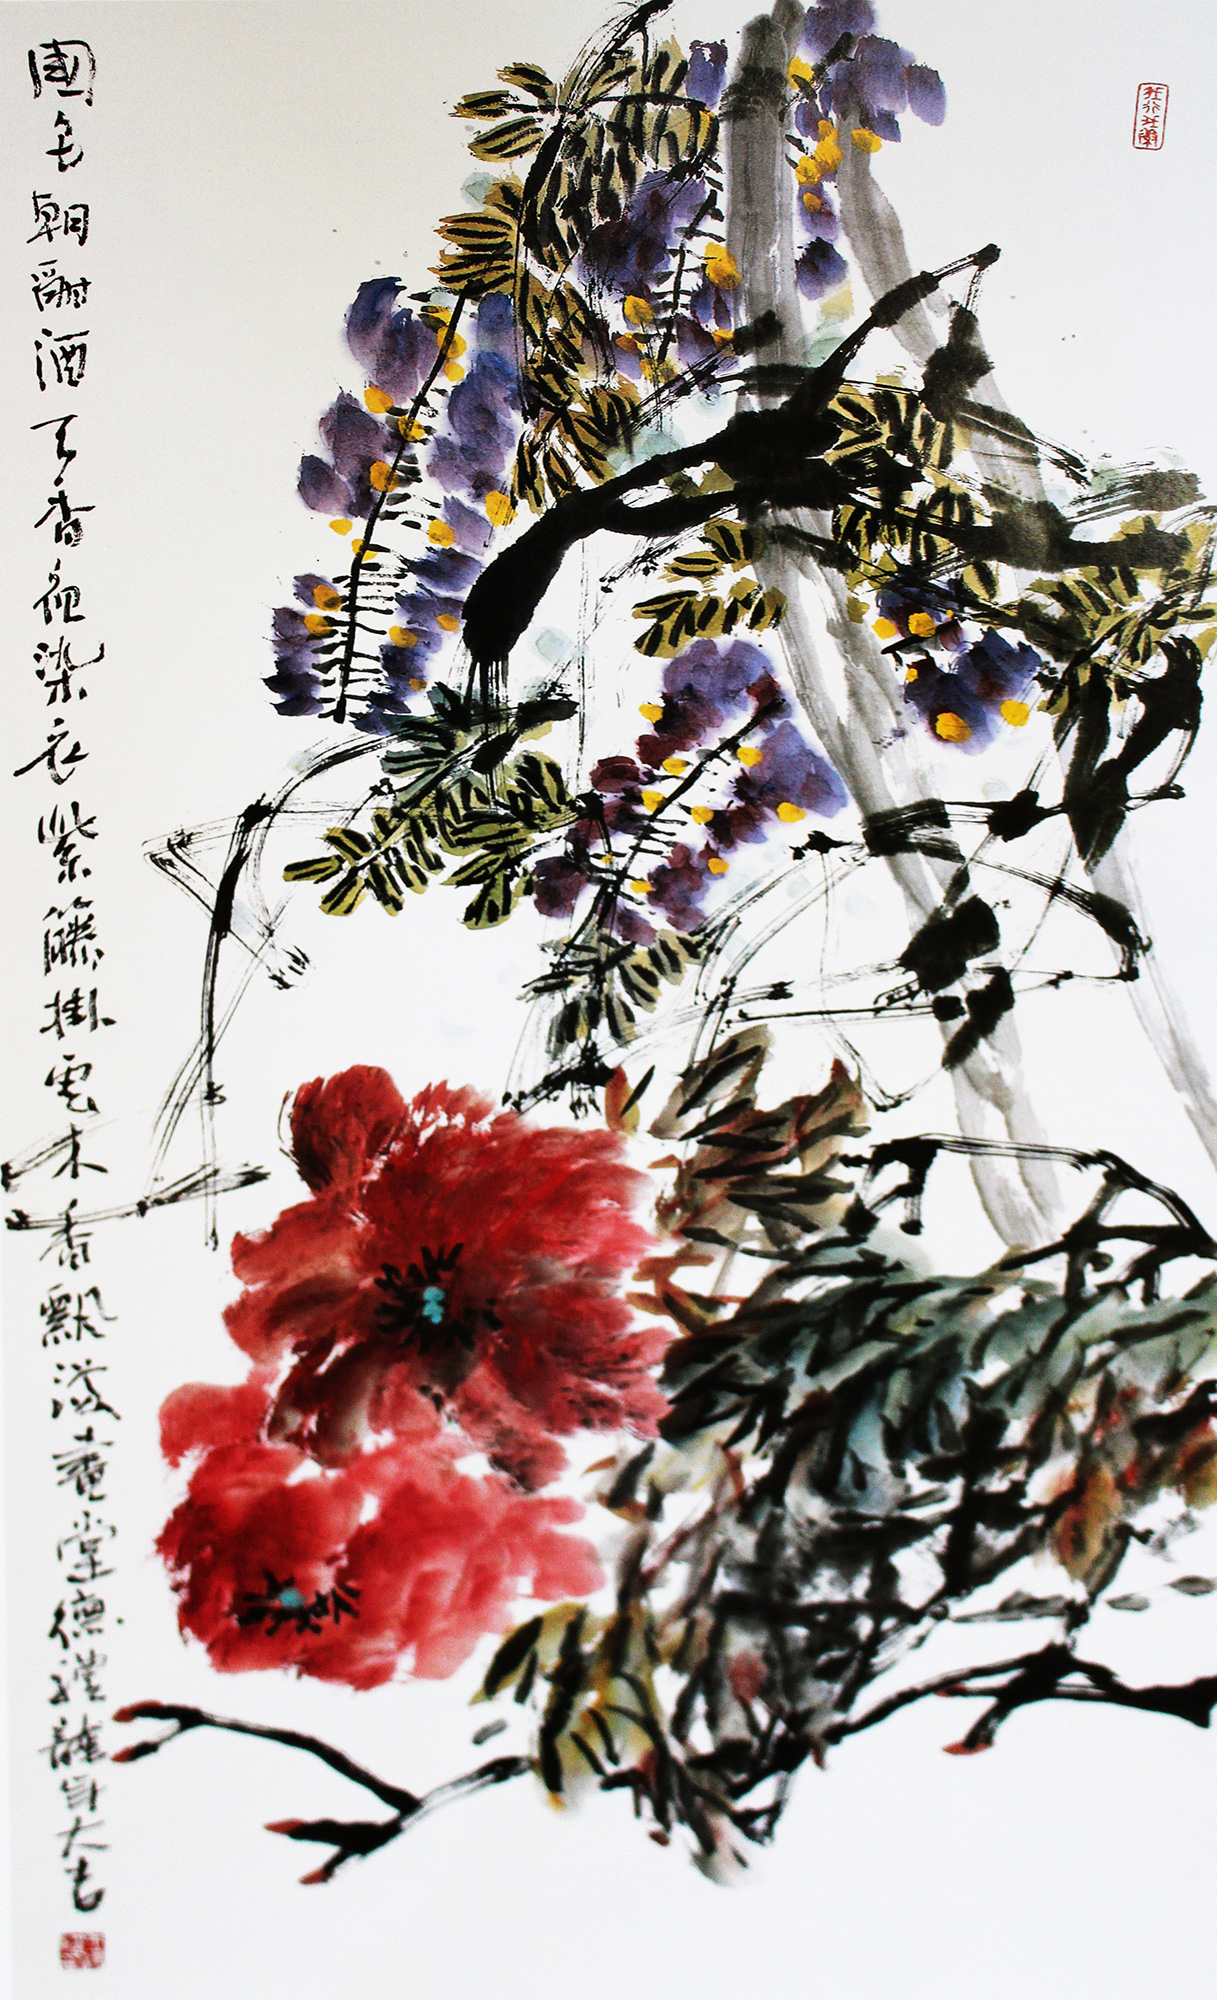 國色朝酣酒天香夜染衣紫籐掛雲木香飄滿畫堂德禮龍年大吉